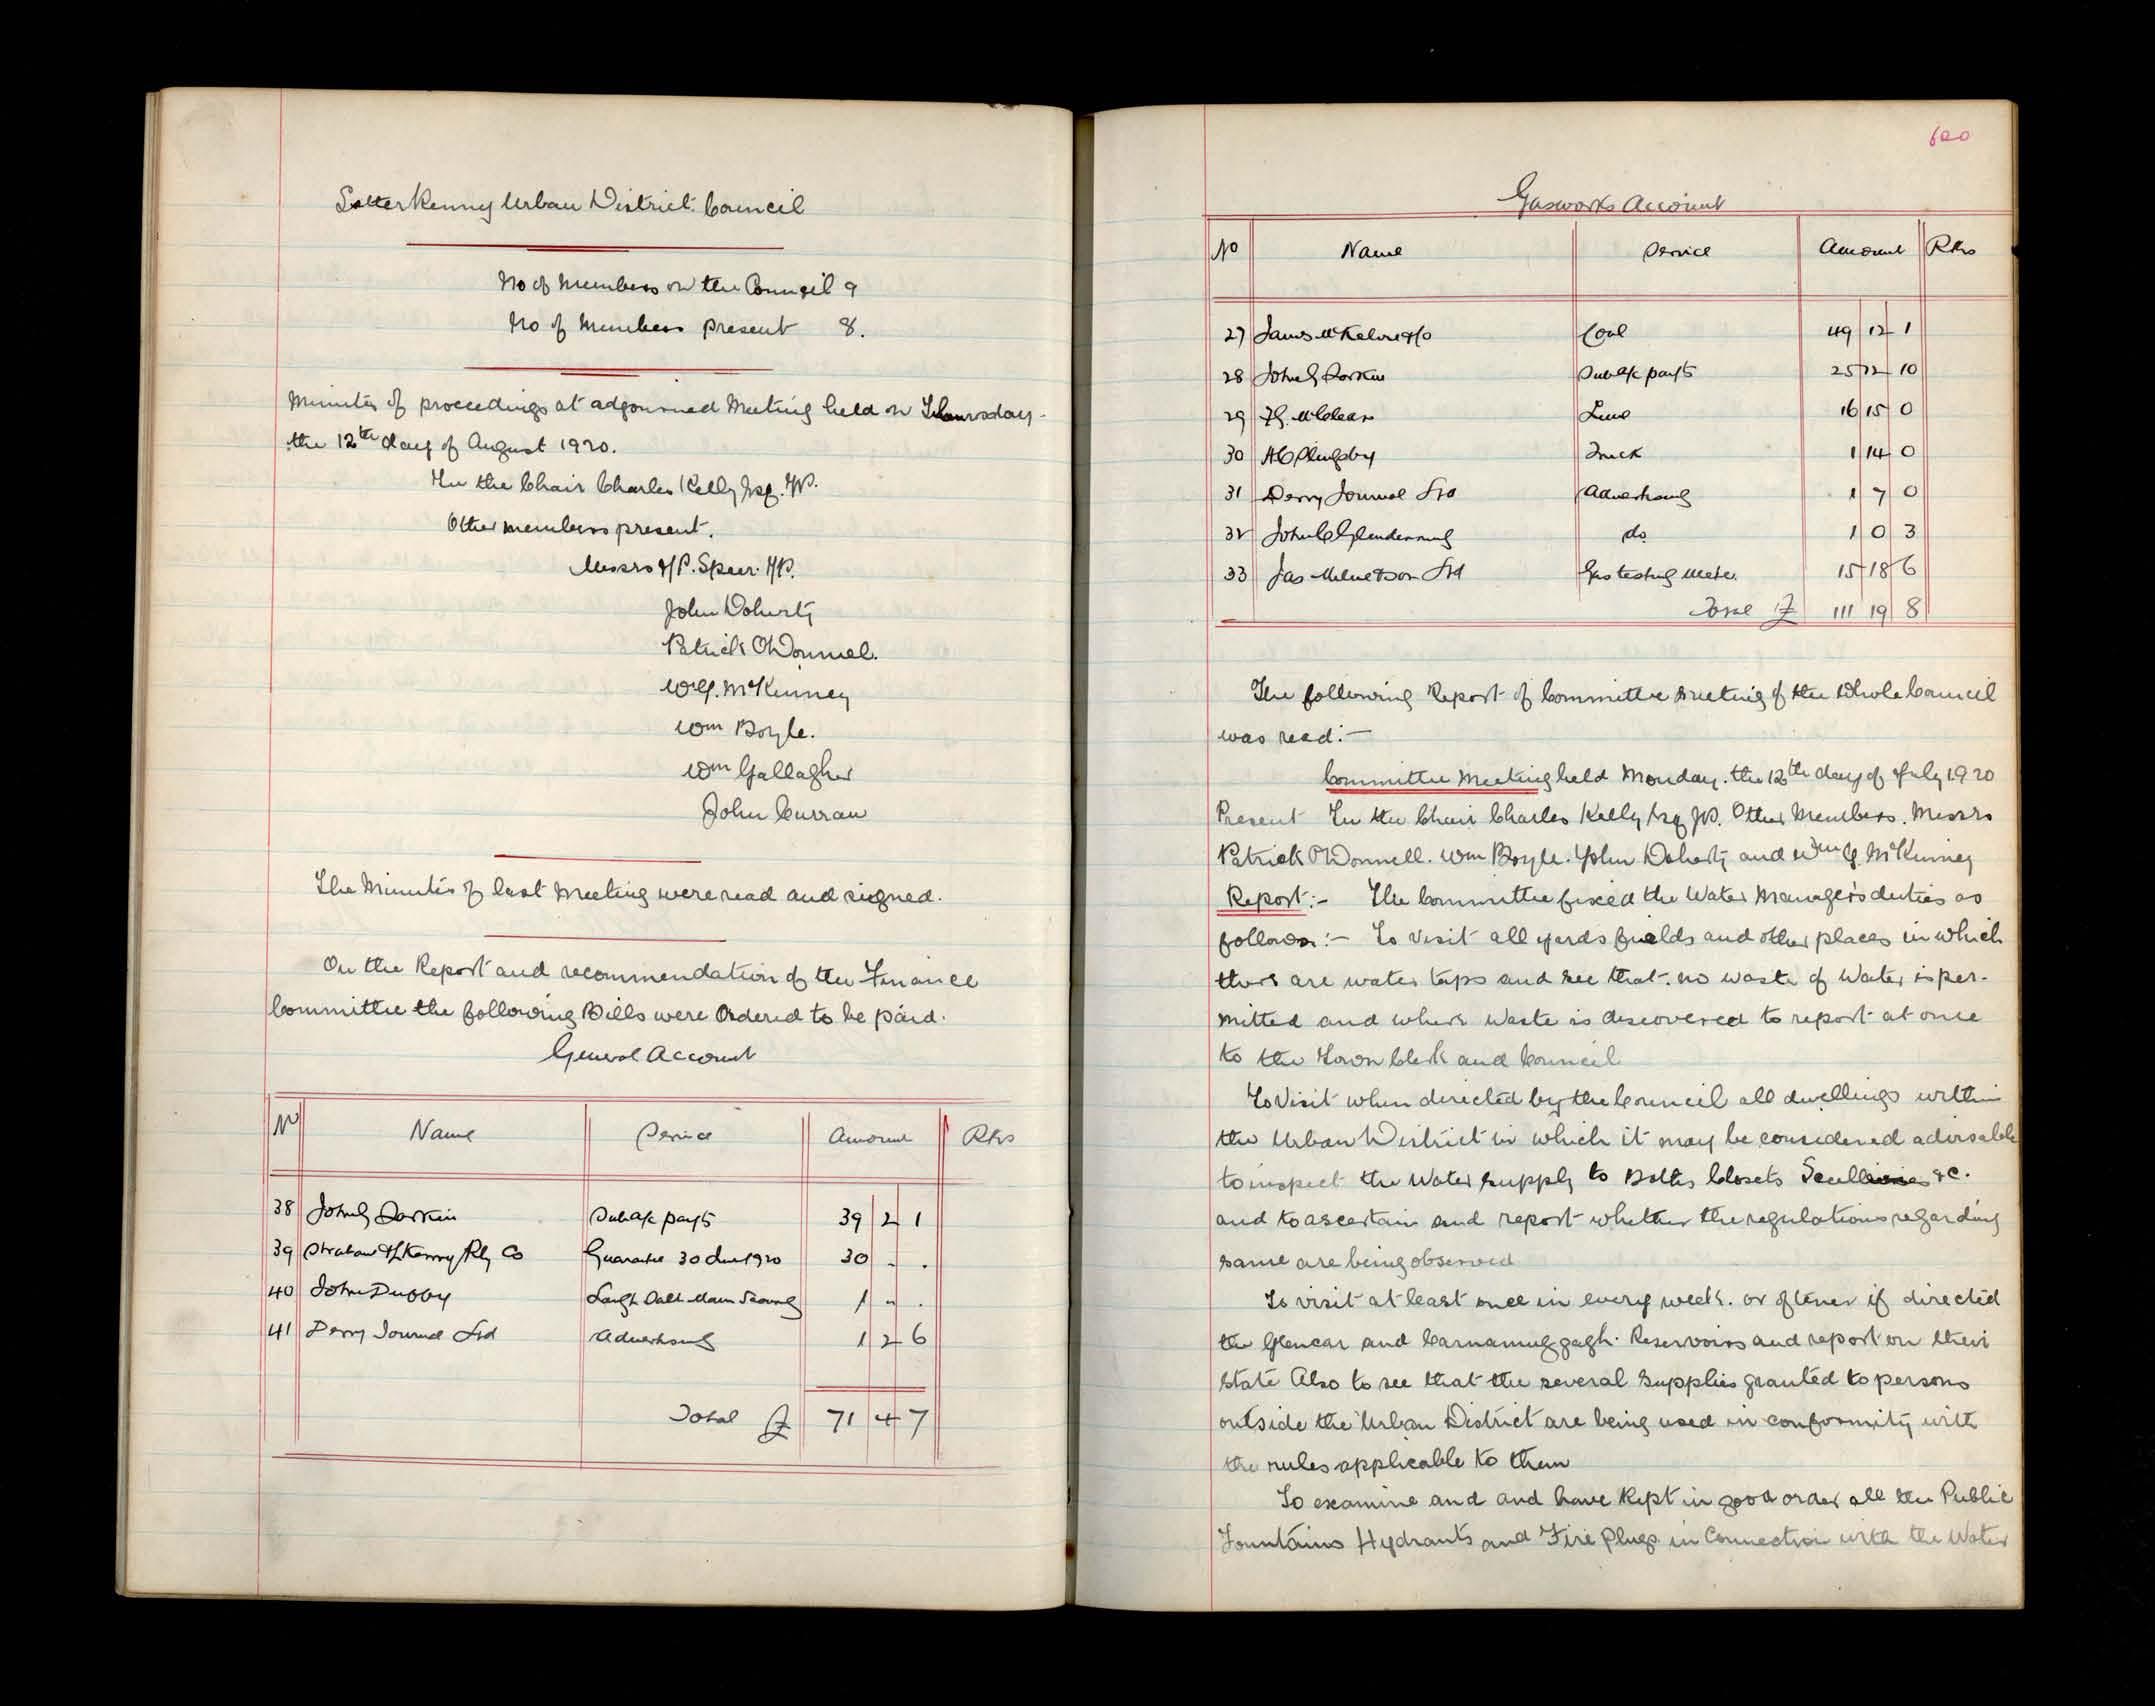 Letterkenny Urban District Council
No of Members on the Council 9
No of Members present 8.
Minutes of proceedings at adjourned Meeting held on Thursday
the 12th day of August 1920.
In the Chair Charles Kelly Esq. JP.
Other members present.
Messrs J P. Speer. JP.
John Doherty
Patrick O'Donnell.
W G. McKinney
Wm Boyle.
Wm Gallagher
John Curran
The Minutes of last Meeting were read and signed.
On the Report and recommendation of the Finance
Committee the following Bills were Ordered to be paid.
General Account
No Name Service Amount Rks
38 John Larkin Sub a/c payts 39 2 1
39 Strabane & LKenny Rly Co Guarantee 30 June 1920 30 - .
40 John Duddy 1 - .
41 Derry Journal Ltd Advertising 1 2 6
Total £ 71 4 7
600
Gasworks Account
No Name Service Amount Rks
27 James McKelvie & Co Coal 49 12 1
28 John Larkin Sub a/c payts 25 12 10
29 McClean Lime 16 15 0
30 Truck 1 14 0
31 Derry Journal Ltd Advertising 1 7 0
32 John C Glendenning do 1 0 3
33 Jas Milne & Son Ltd Gas testing Meter. 15 18 6
Total £ 111 19 8
The following Report of Committee Meeting of the Whole Council
was read:-
Committee Meeting held Monday. the 12th day of July 1920
Present In the Chair Charles Kelly Esq JP. Other Members. Messrs
Patrick O'Donnell. Wm Boyle. John Doherty and Wm G McKinney
Report:- The Committee fixed the Water Manager's duties as
follows:- To visit all yards fields and other places in which
there are water taps and see that no waste of Water is per-
mitted and where waste is discovered to report at once
to the Town Clerk and Council
To Visit when directed by the Council all dwellings within
the Urban District in which it may be considered advisable
to inspect the Water supply to Baths Closets Sculleries &c.
and to ascertain and report whether the regulations regarding
same are being observed
To visit at least once in every week. or oftener if directed
the Glencar and Carnamuggagh Reservoirs and report on their
state Also to see that the several supplies granted to persons
outside the Urban District are being used in conformity with
the rules applicable to them
To examine and and have Kept in good order all the Public
Fountains Hydrants and Fire Plugs in Connection with the Water